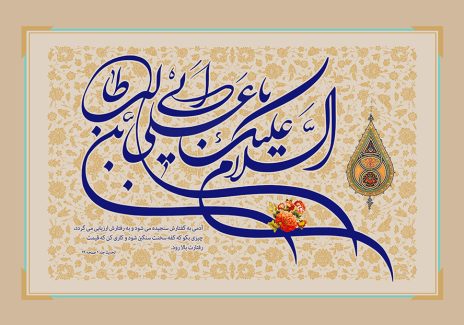 السلام علیک یا علی بن ابی طالب
آدمی به گفتارش سنجیده می شود و به رفتارش ارزیابی می گردد،
چیزی بگو که کفه سخنت سنگین شود و کاری کن که قیمت
رفتارت بالا رود.